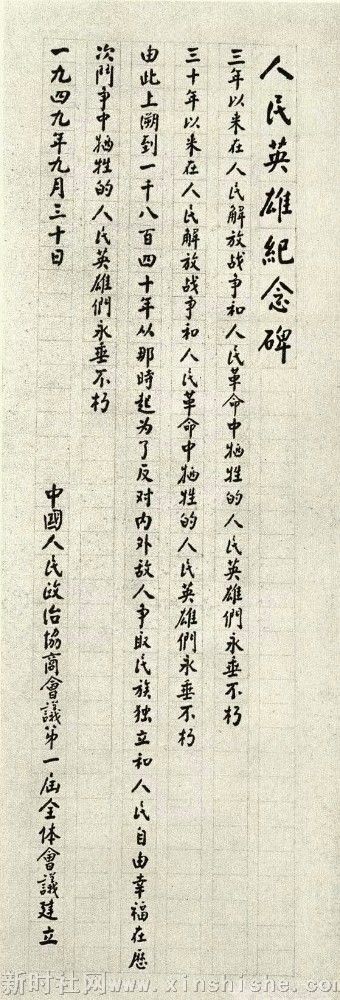 人民英雄紀念碑
三年以来在人民解放战争和人民革命中牺牲的人民英雄們永垂不朽
三十年以来在人民解放战争和人民革命中牺牲的人民英雄們永垂不朽
由此上溯到一千八百四十年从那時起为了反对内外敌人争取民族独立和人民自由幸福在歷
次鬥争中牺牲的人民英雄們永垂不朽
一九四九年九月三十日
中國人民政治協商會議第一届全体會議建立
新时社网www.xinshishe.com